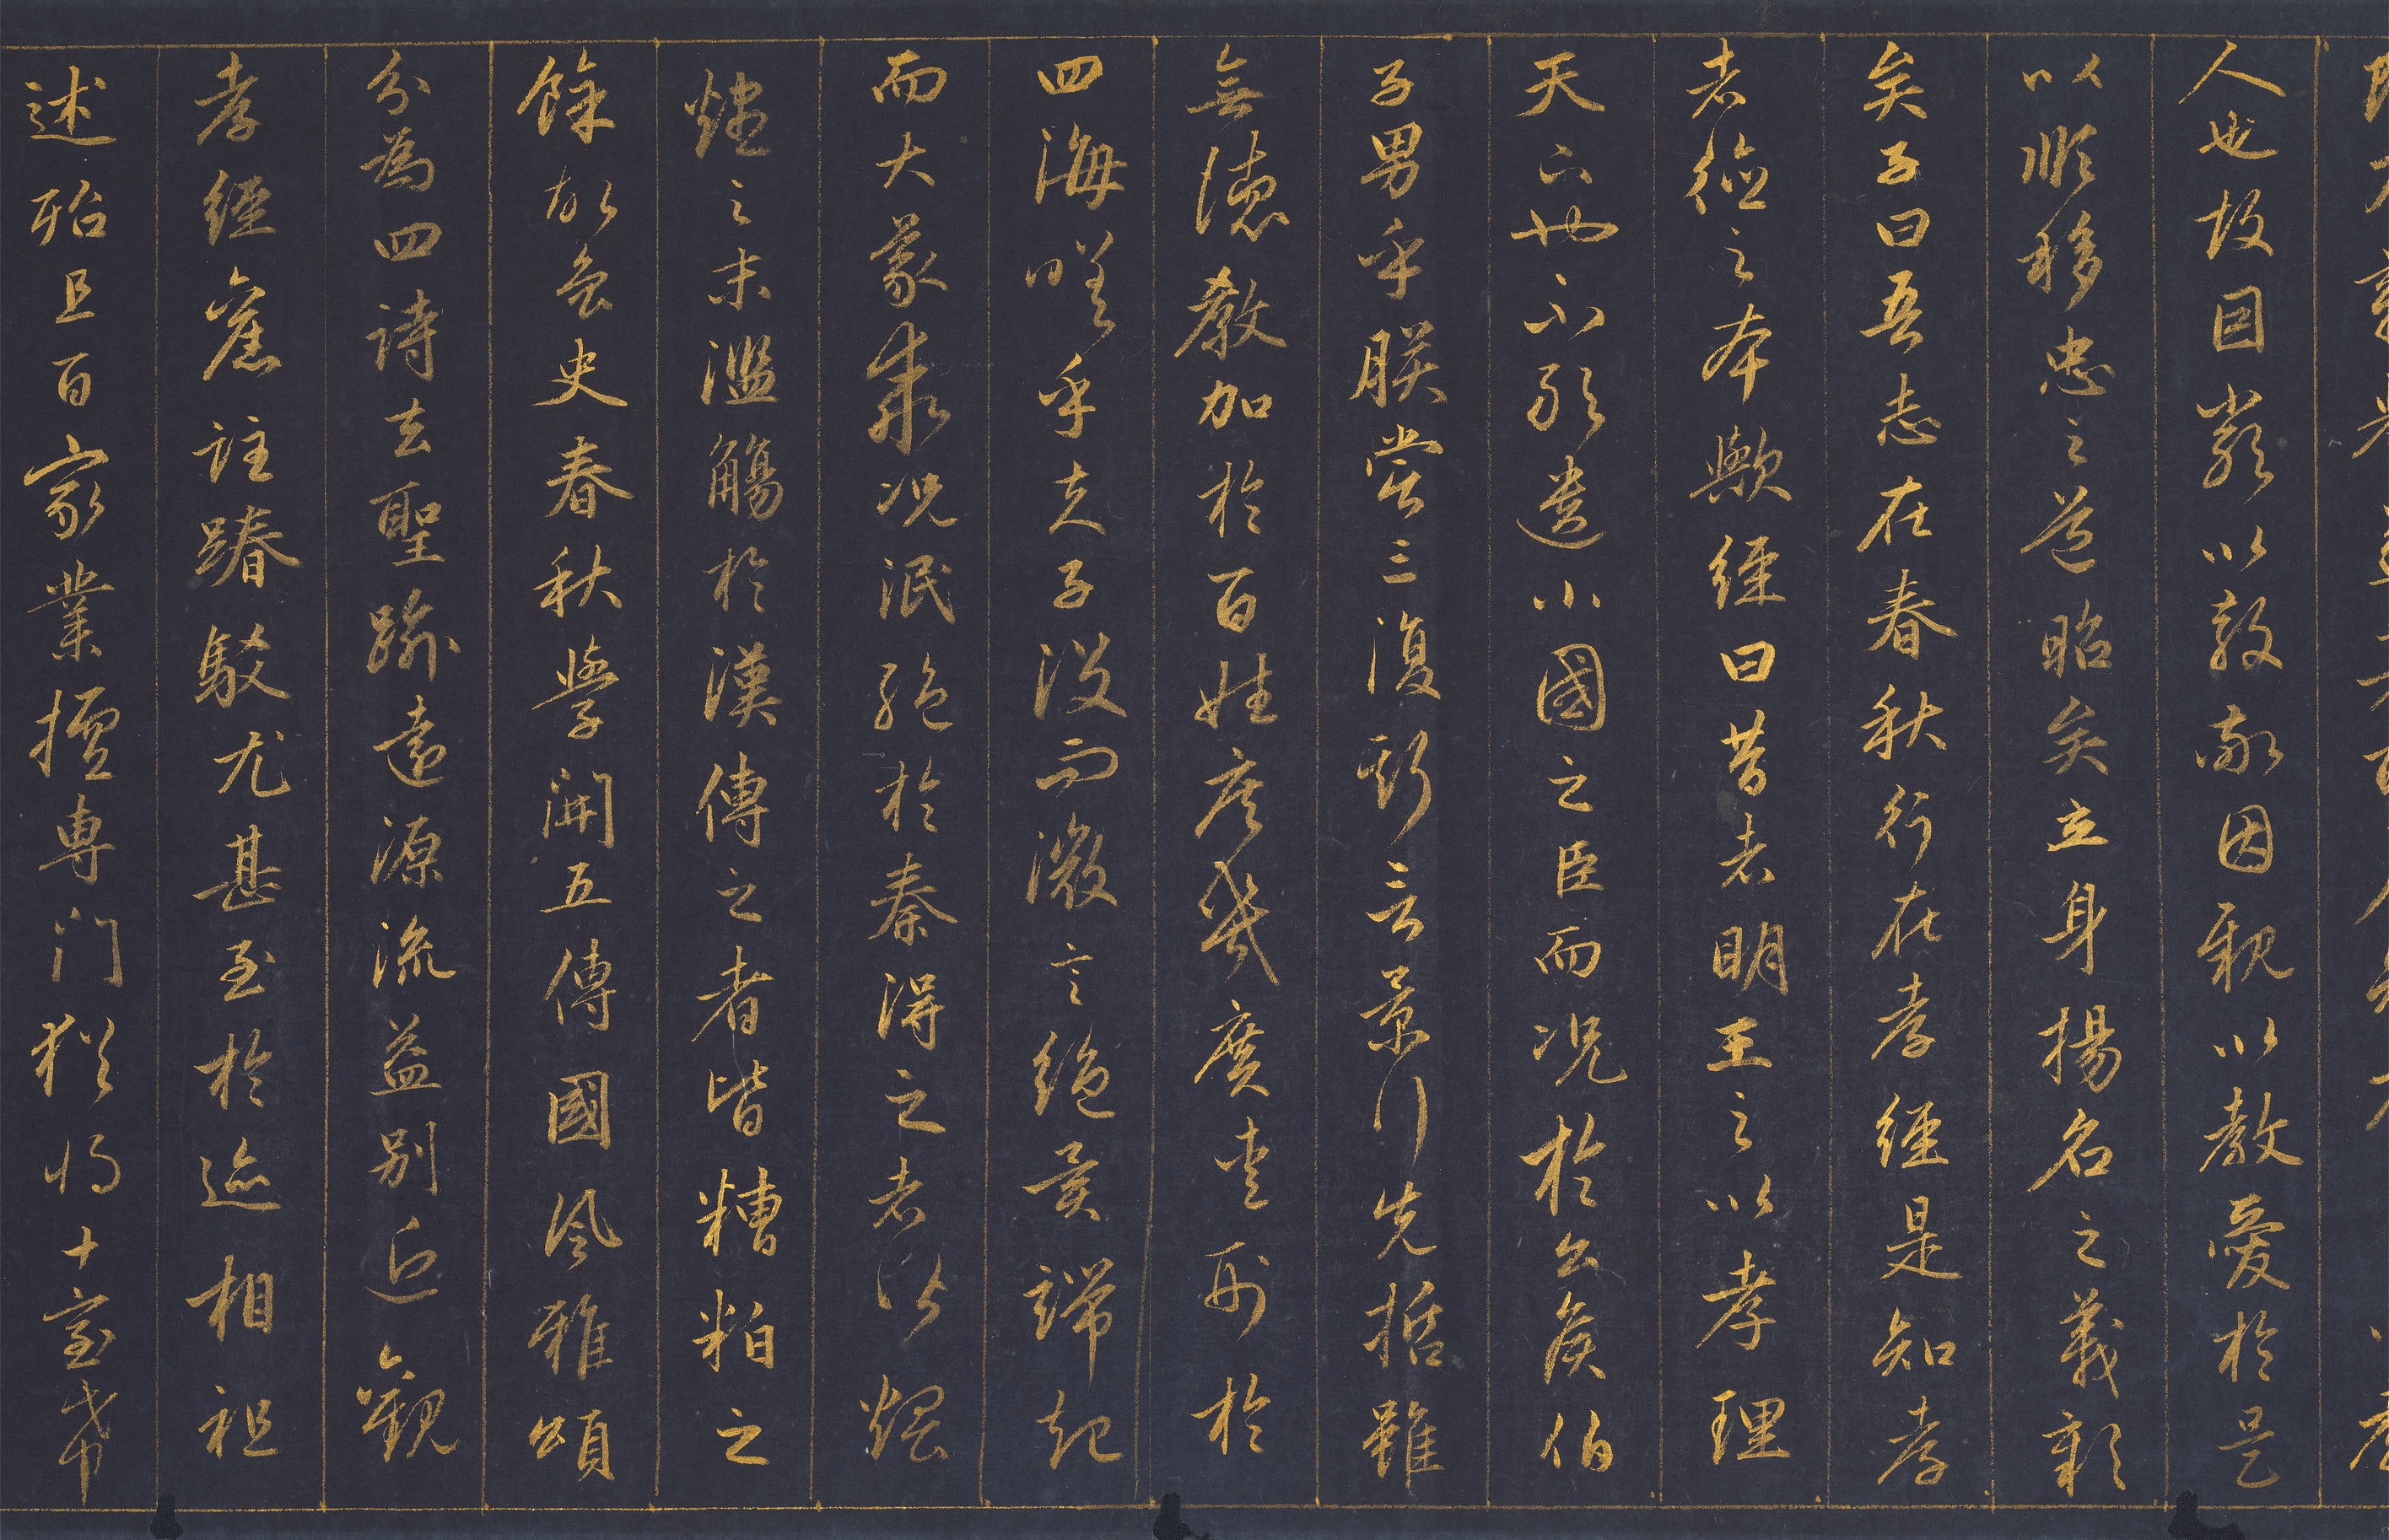 人也故因嚴以教敬因親以教愛於是
以順移忠之道昭矣立身揚名之義彰
矣子曰吾志在春秋行在孝經是知孝
者德之本歟經曰昔者明王之以孝理
天下也不敢遺小國之臣而况於公侯伯
子男乎朕嘗三復斯言景行先哲雖
無德教加於百姓庶幾廣愛刑於
四海嗟乎夫子没而微言絕異端起
而大義乖况泯絕於秦得之者皆煨
燼之末濫觴於漢傳之者皆糟粕之
餘故魯史春秋學開五傳國風雅頌
分為四詩去聖踰遠源流益別近觀
孝經舊註踳駁尤甚至於迹相祖
述殆且百家業擅專門猶將十室希